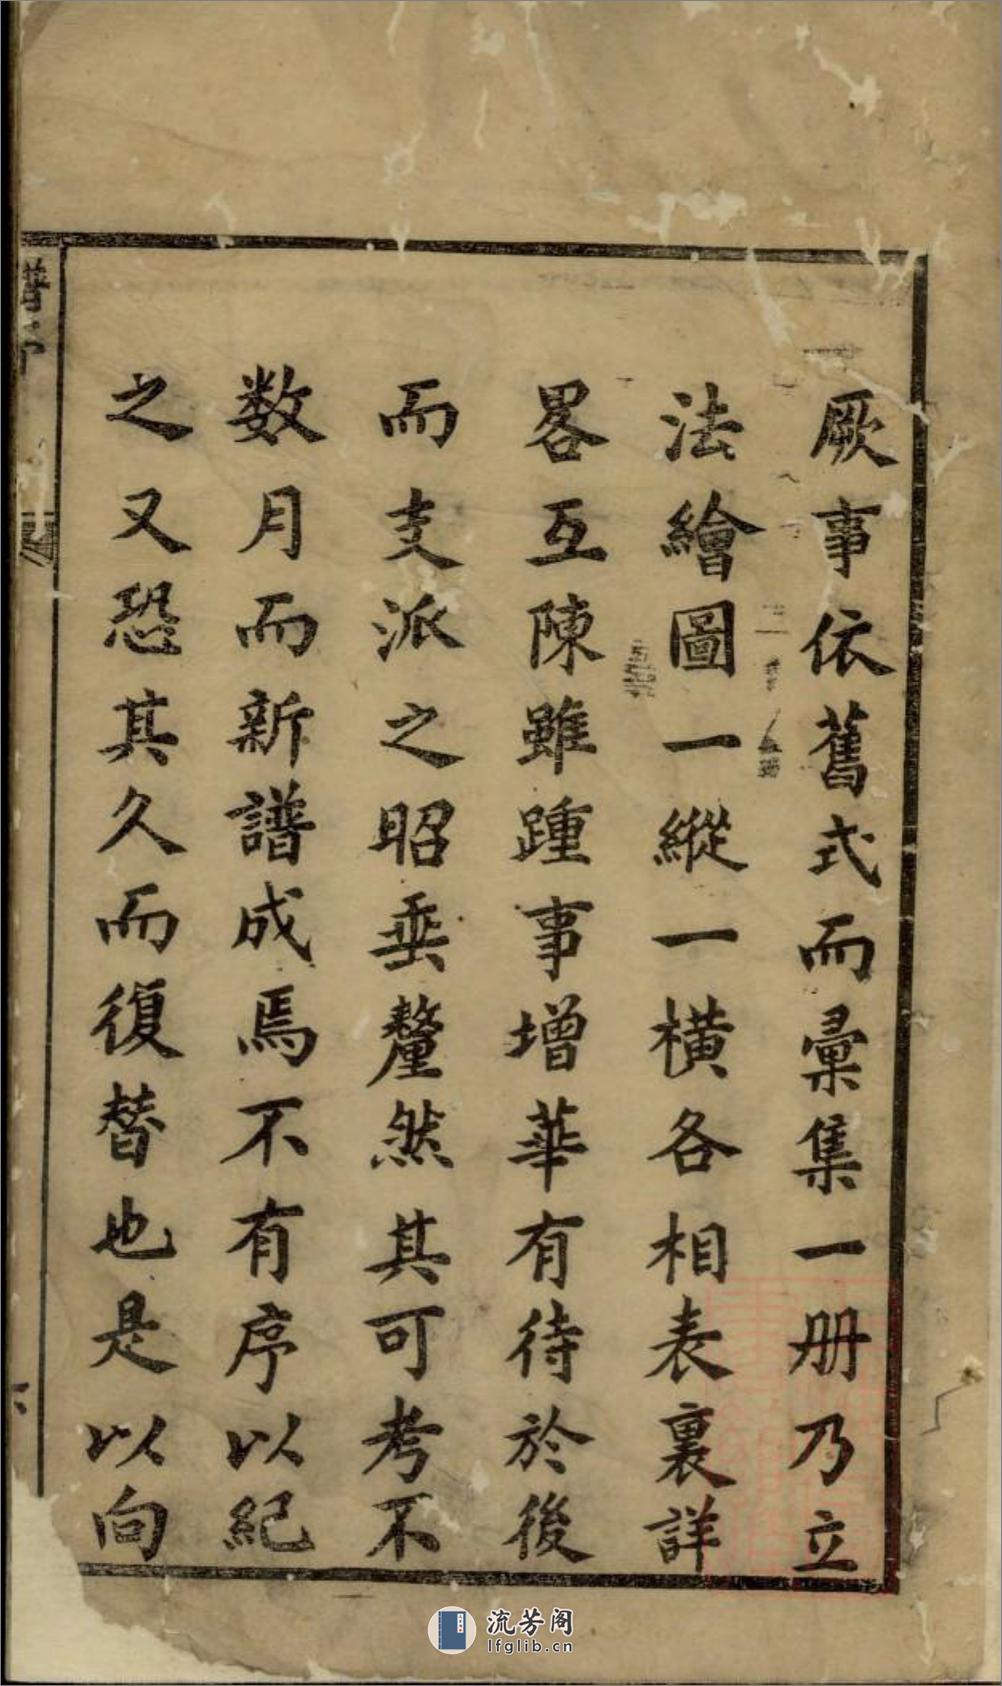 厥事依舊式而彙集一册乃立
法繪圖一縱一橫各相表裏詳
畧互陳雖踵事增華有待於後
而支派之昭垂釐然其可考不
数月而新譜成焉不有序以紀
之又恐其久而復替也是以向
譜序
流芳阁
lfglib.cn